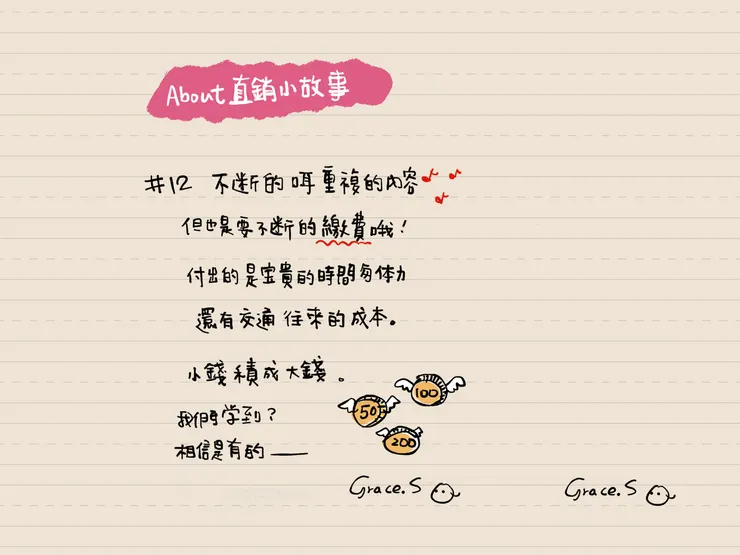 About直銷小故事
#12 不斷的咡重複的內容
但也是要不斷的繳費哦!
付出的是宝貴的時間勿体力
還有交通往來的成本。
小錢積成大錢。
我們学到?
相信是有的——
100
50
200
Grace.S
Grace.S